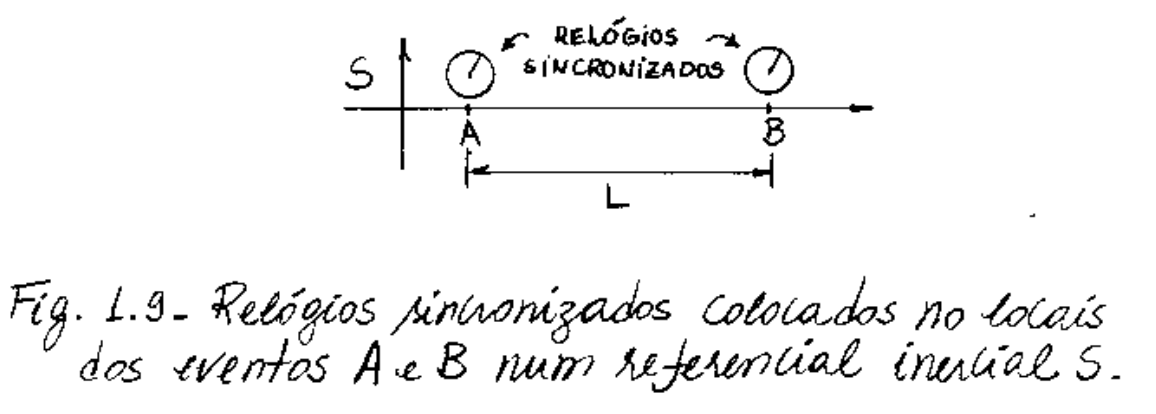 RELÓGIOS
SINCRONIZADOS
S
A
B
L
Fig. 1.9- Relógios sincronizados colocados no locais
dos eventos A e B num referencial inercial S.